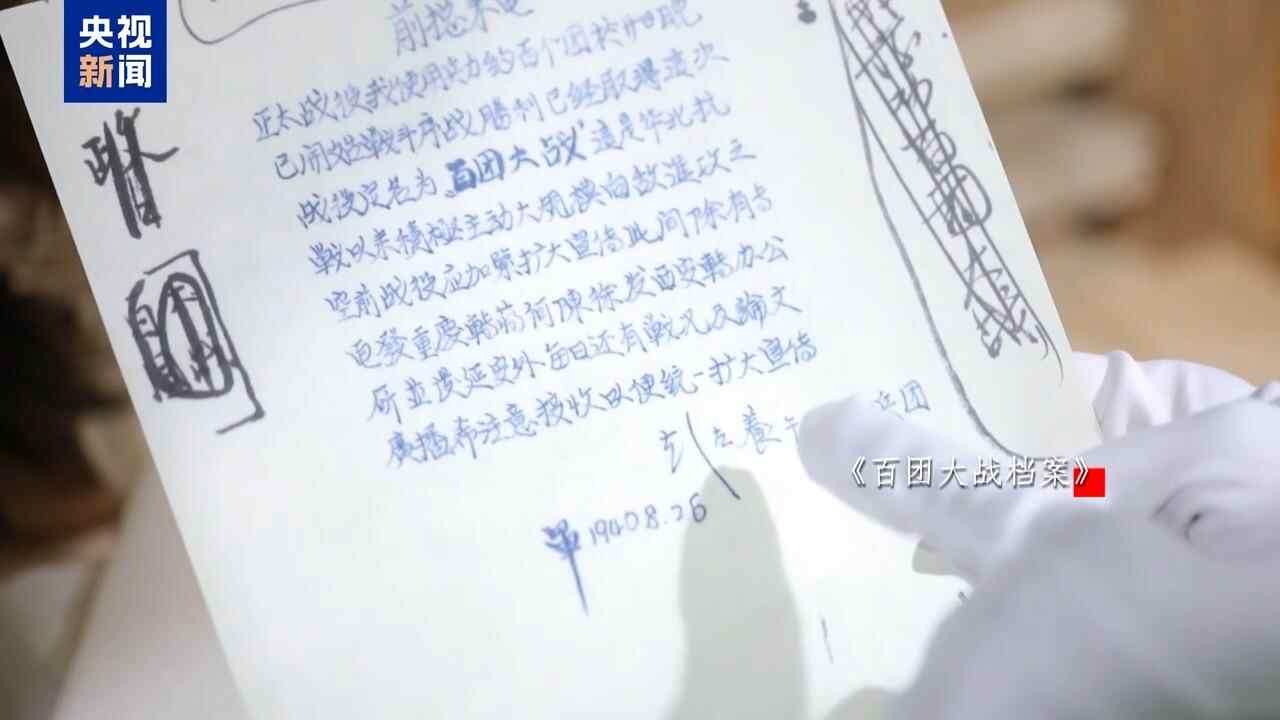 央视
新闻
前总来电
正太战役我使用兵力约百个团於廿日晚
已開始戰斗序战勝利已經取得這次
战役定名为"百团大战"這是华北抗
戰以来積極主动大规模向敌進攻之
空前战役应加緊扩大宣传此间除有专
电發重慶轉蒋何陳徐发西安轉办公
所並 延安外每日还有戰况及論文
廣播希注意接收以便统一扩大宣传
左養 兵团
1940 8.26
《百团大战档案》